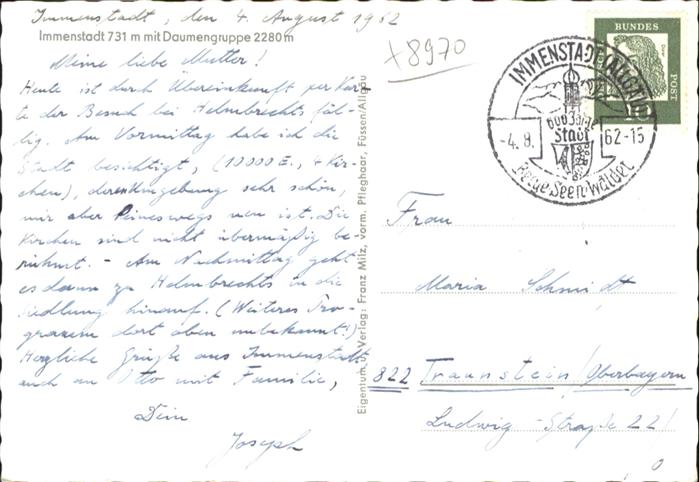 Immenstadt, den 4. August 1962
Immenstadt 731 m mit Daumengruppe 2280 m
Meine liebe Mutter!
Heute ist durch Übereinkunft per Kar-
te der Besuch bei Helmbrechts fäl-
lig. Am Vormittag habe ich die
Stadt besichtigt, (10000 E., 4 Kir-
chen), deren Umgebung sehr schön,
mir aber keineswegs neu ist. Die
Kirchen sind nicht übermäßig be-
rühmt. - Am Nachmittag geht
es dann zu Helmbrechts in die
Siedlung hinauf. (Weiteres Pro-
gramm dort oben unbekannt!)
Herzliche Grüße aus Immenstadt
auch an Otto mit Familie,
Dein
Joseph
Eigentum u. Verlag: Franz Milz, vorm. Pfleghaar, Füssen/Allgäu
+8970
BUNDES
POST
10
IMMENSTADT (ALLGÄU)
600 Jahre
Stadt
-4.8.
62-15
Berge Seen Wälder
Frau
Maria Schmidt
822 Traunstein/Oberbayern
Ludwig-Straße 22/
0